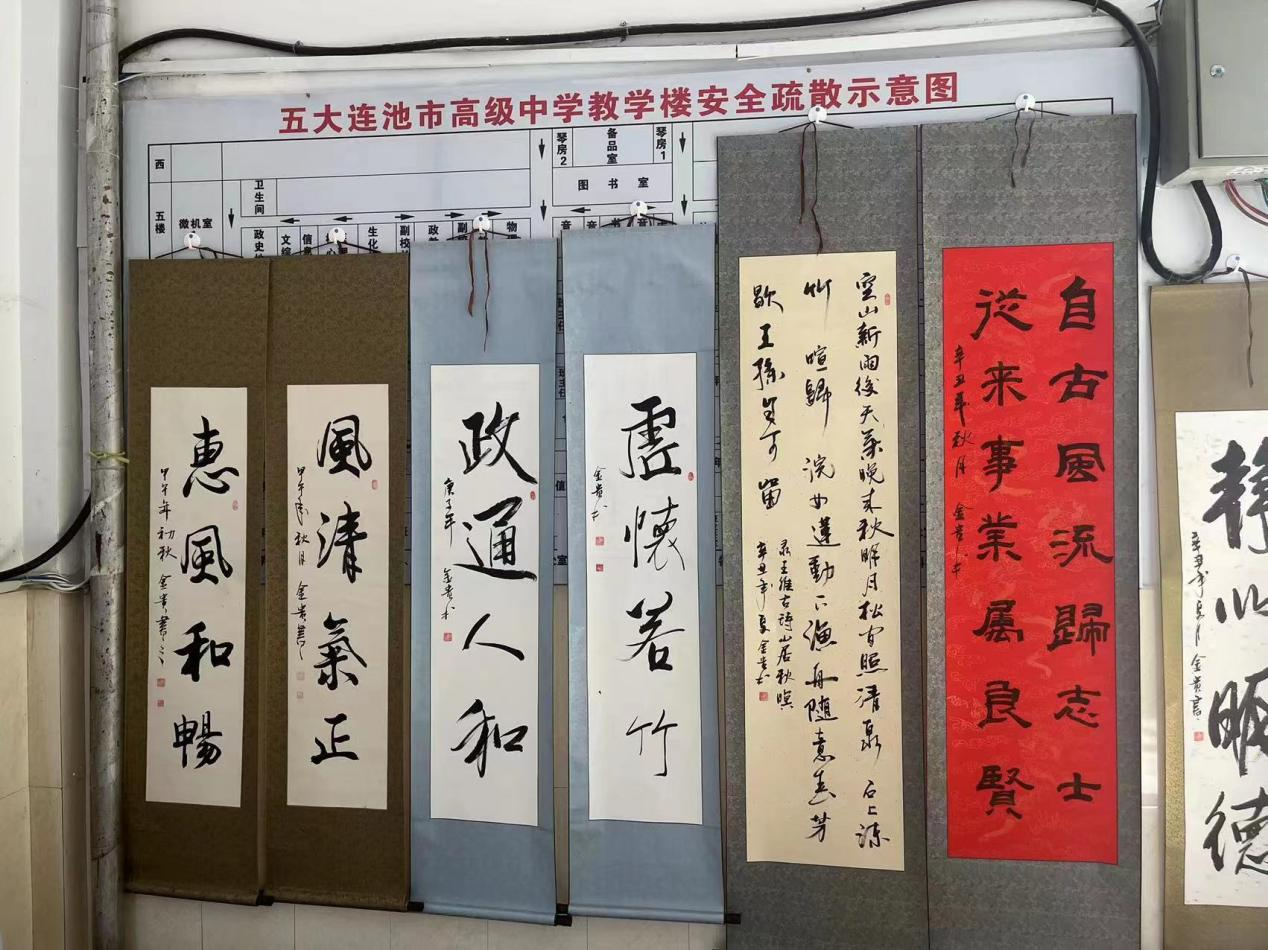 五大连池市高级中学教学楼安全疏散示意图
西
琴房2
备品室
琴房1
图书室
卫生间
五楼
微机室
惠風和暢
甲午年初秋 金貴書
風清氣正
甲午年秋月 金貴書
政通人和
庚子年
金贵书
虚懷若竹
金贵书
空山新雨後天氣晚来秋明月松间照清泉石上流
竹喧歸浣女蓮動下漁舟随意春芳
歇王孫自可留
录王维古诗山居秋暝
辛丑年夏金贵书
自古風流歸志士
從来事業属良賢
辛丑年秋月 金贵书
静以晒德
金贵書